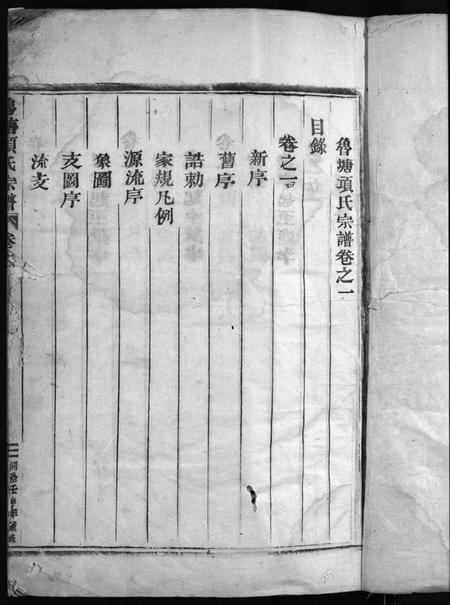 魯塘項氏宗譜卷之一
目錄
卷之一
新序
舊序
誥勅
家規凡例
源流序
象圖
支圖序
流支
魯塘項氏宗譜
卷之
同治壬申年